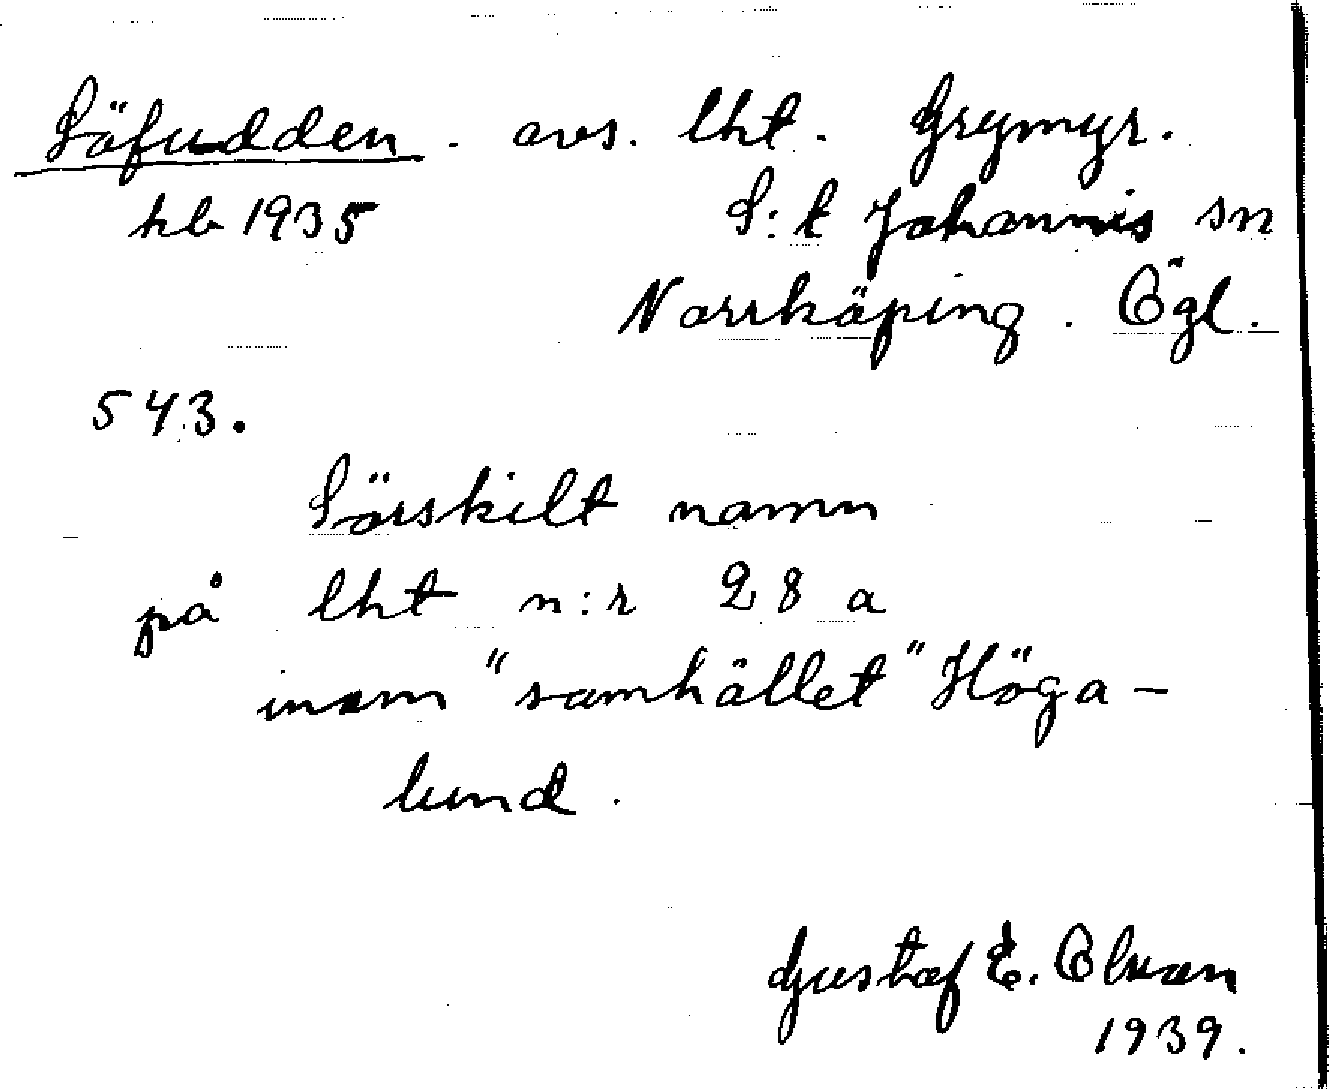 Söfudden. avs. lht. Grymyr.
hb 1935 S:t Johannis sn
Norrköping. Ögl.
543.
Särskilt namn
på lht n:r 28 a
inom "samhället" Höga-
lund.
Gustaf E.
1939.